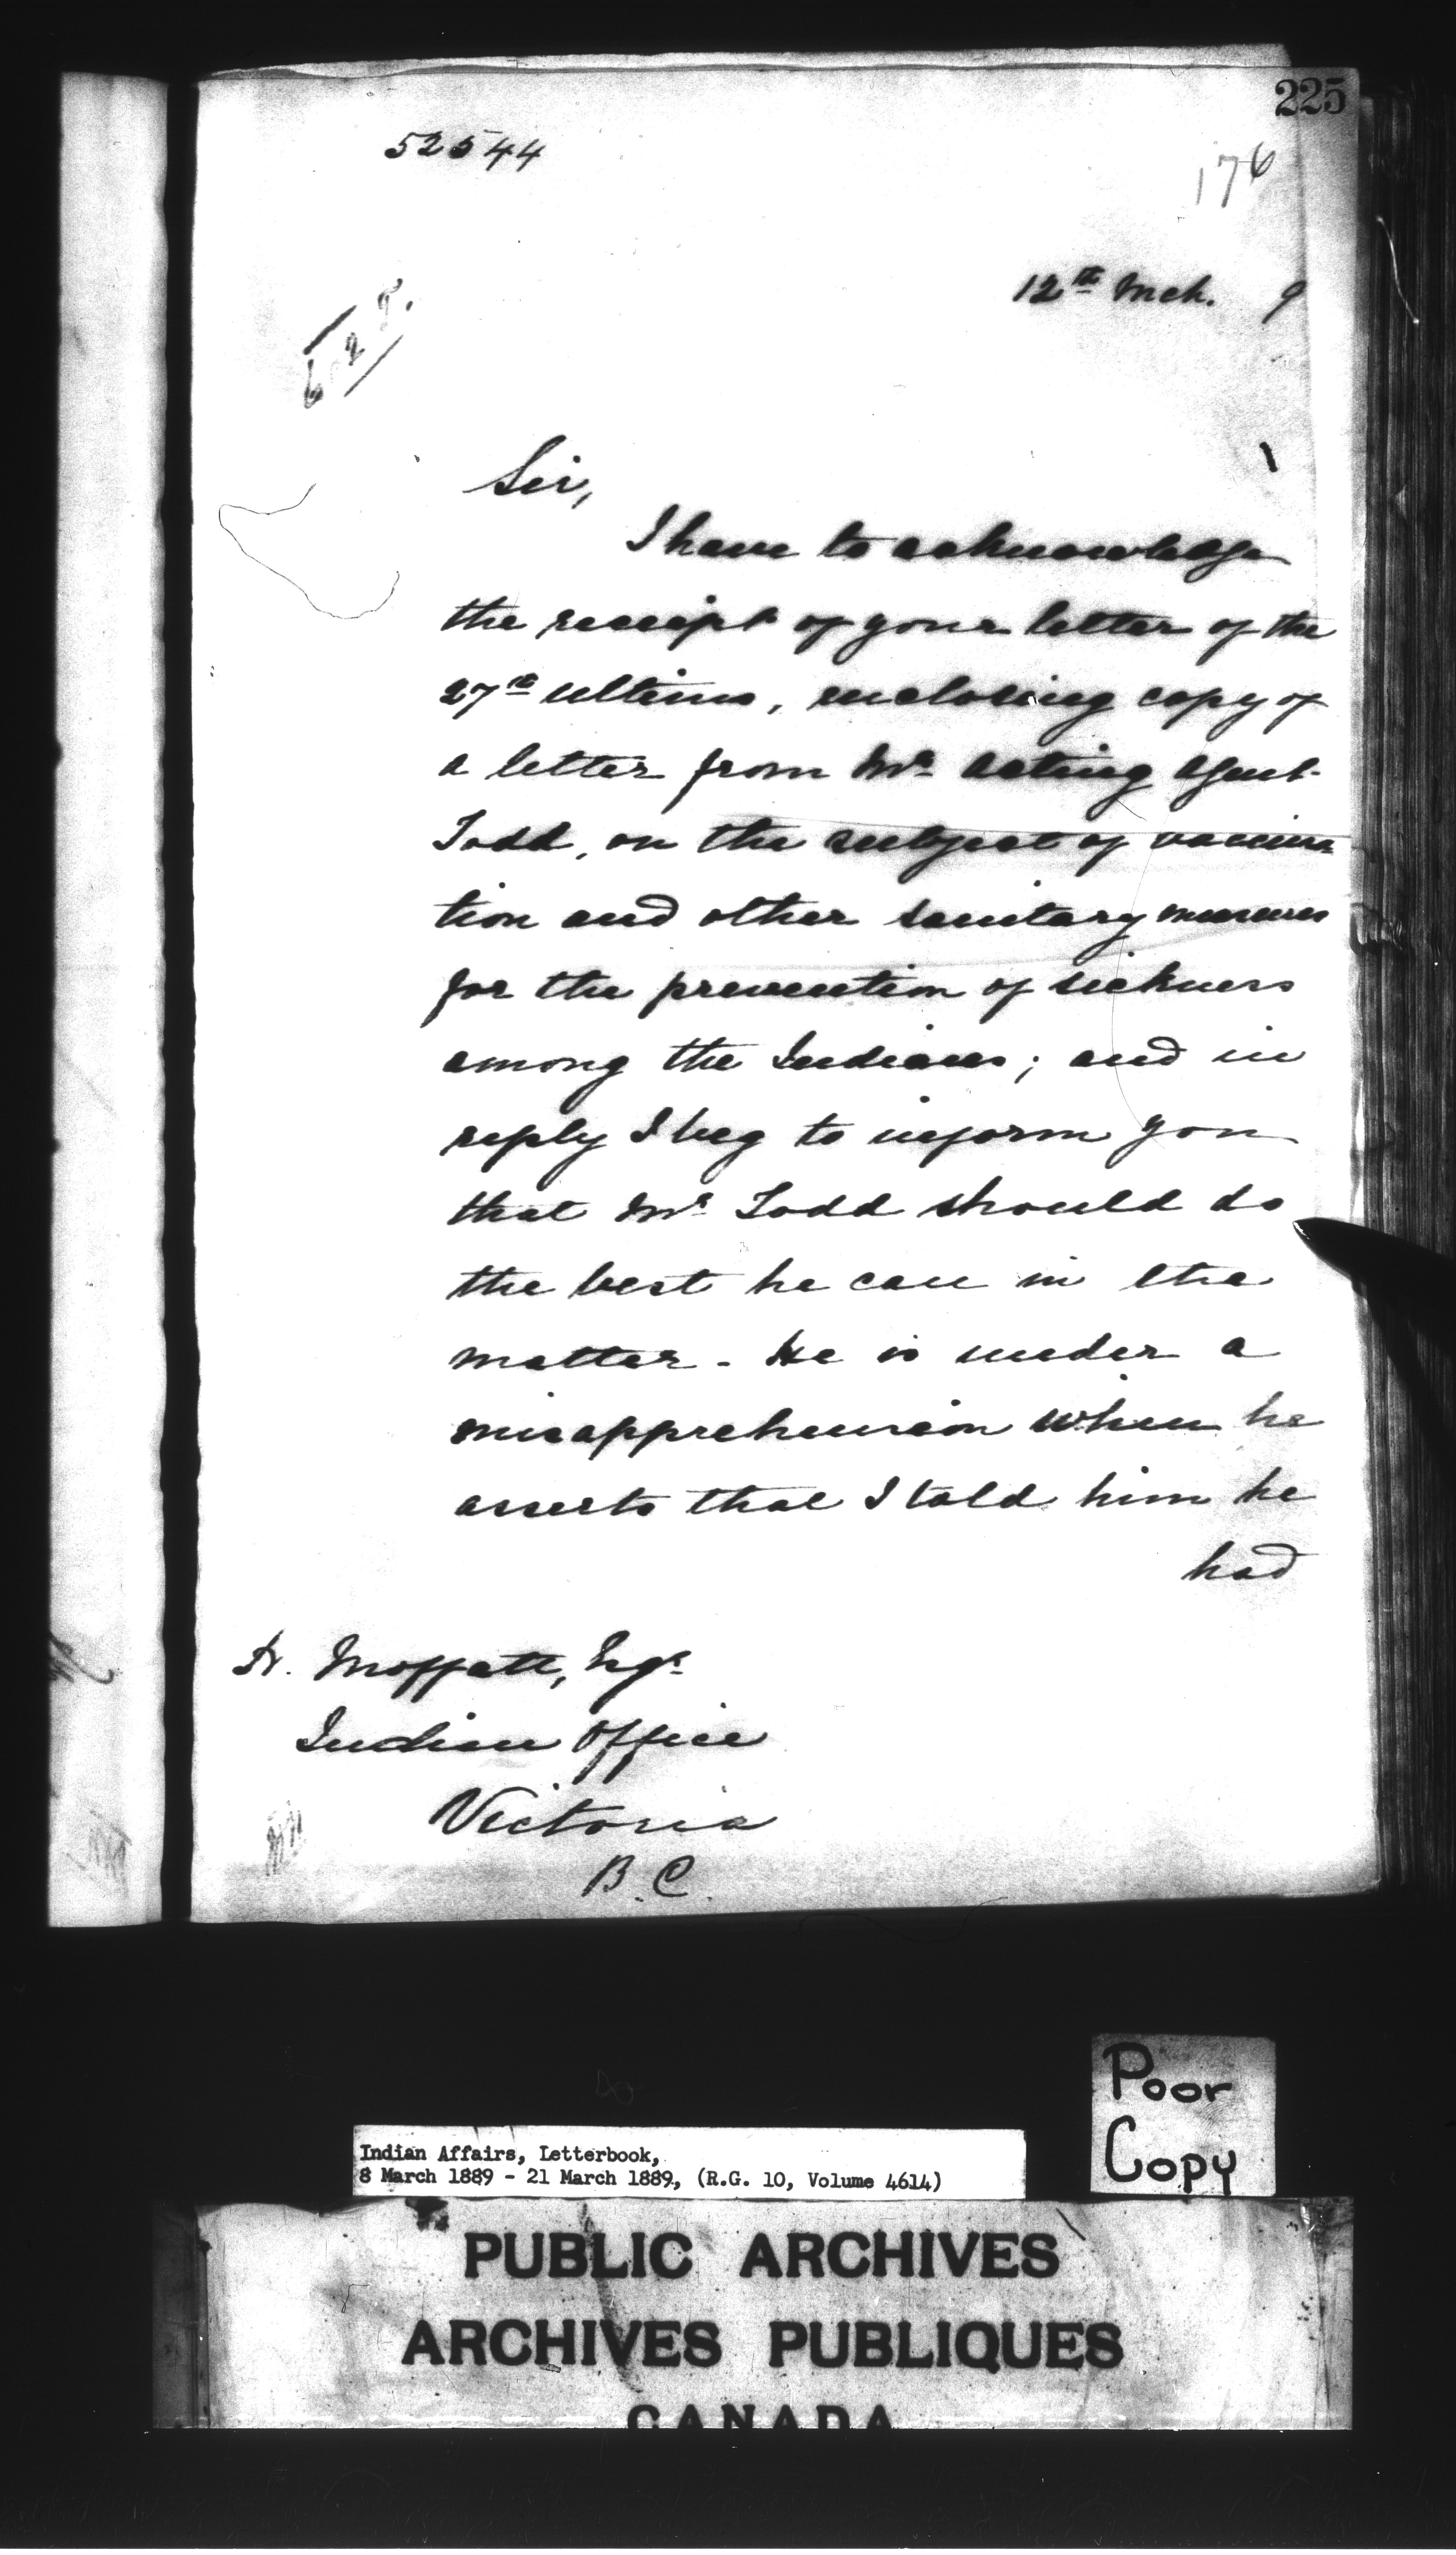 225
52544
176
12th Mch. 9
Sir,
I have to acknowledge
the receipt of your letter of the
27th ultimo, enclosing copy of
a letter from Mr. Acting Agent
Todd, on the subject of vaccina-
tion and other sanitary measures
for the prevention of sickness
among the Indians; and in
reply I beg to inform you
that Mr. Todd should do
the best he can in the
matter. He is under a
misapprehension when he
asserts that I told him he
had
H. Moffatt, Esqr.
Indian Office
Victoria
B.C.
Poor
Copy
Indian Affairs, Letterbook,
8 March 1889 - 21 March 1889, (R.G. 10, Volume 4614)
PUBLIC ARCHIVES
ARCHIVES PUBLIQUES
CANADA